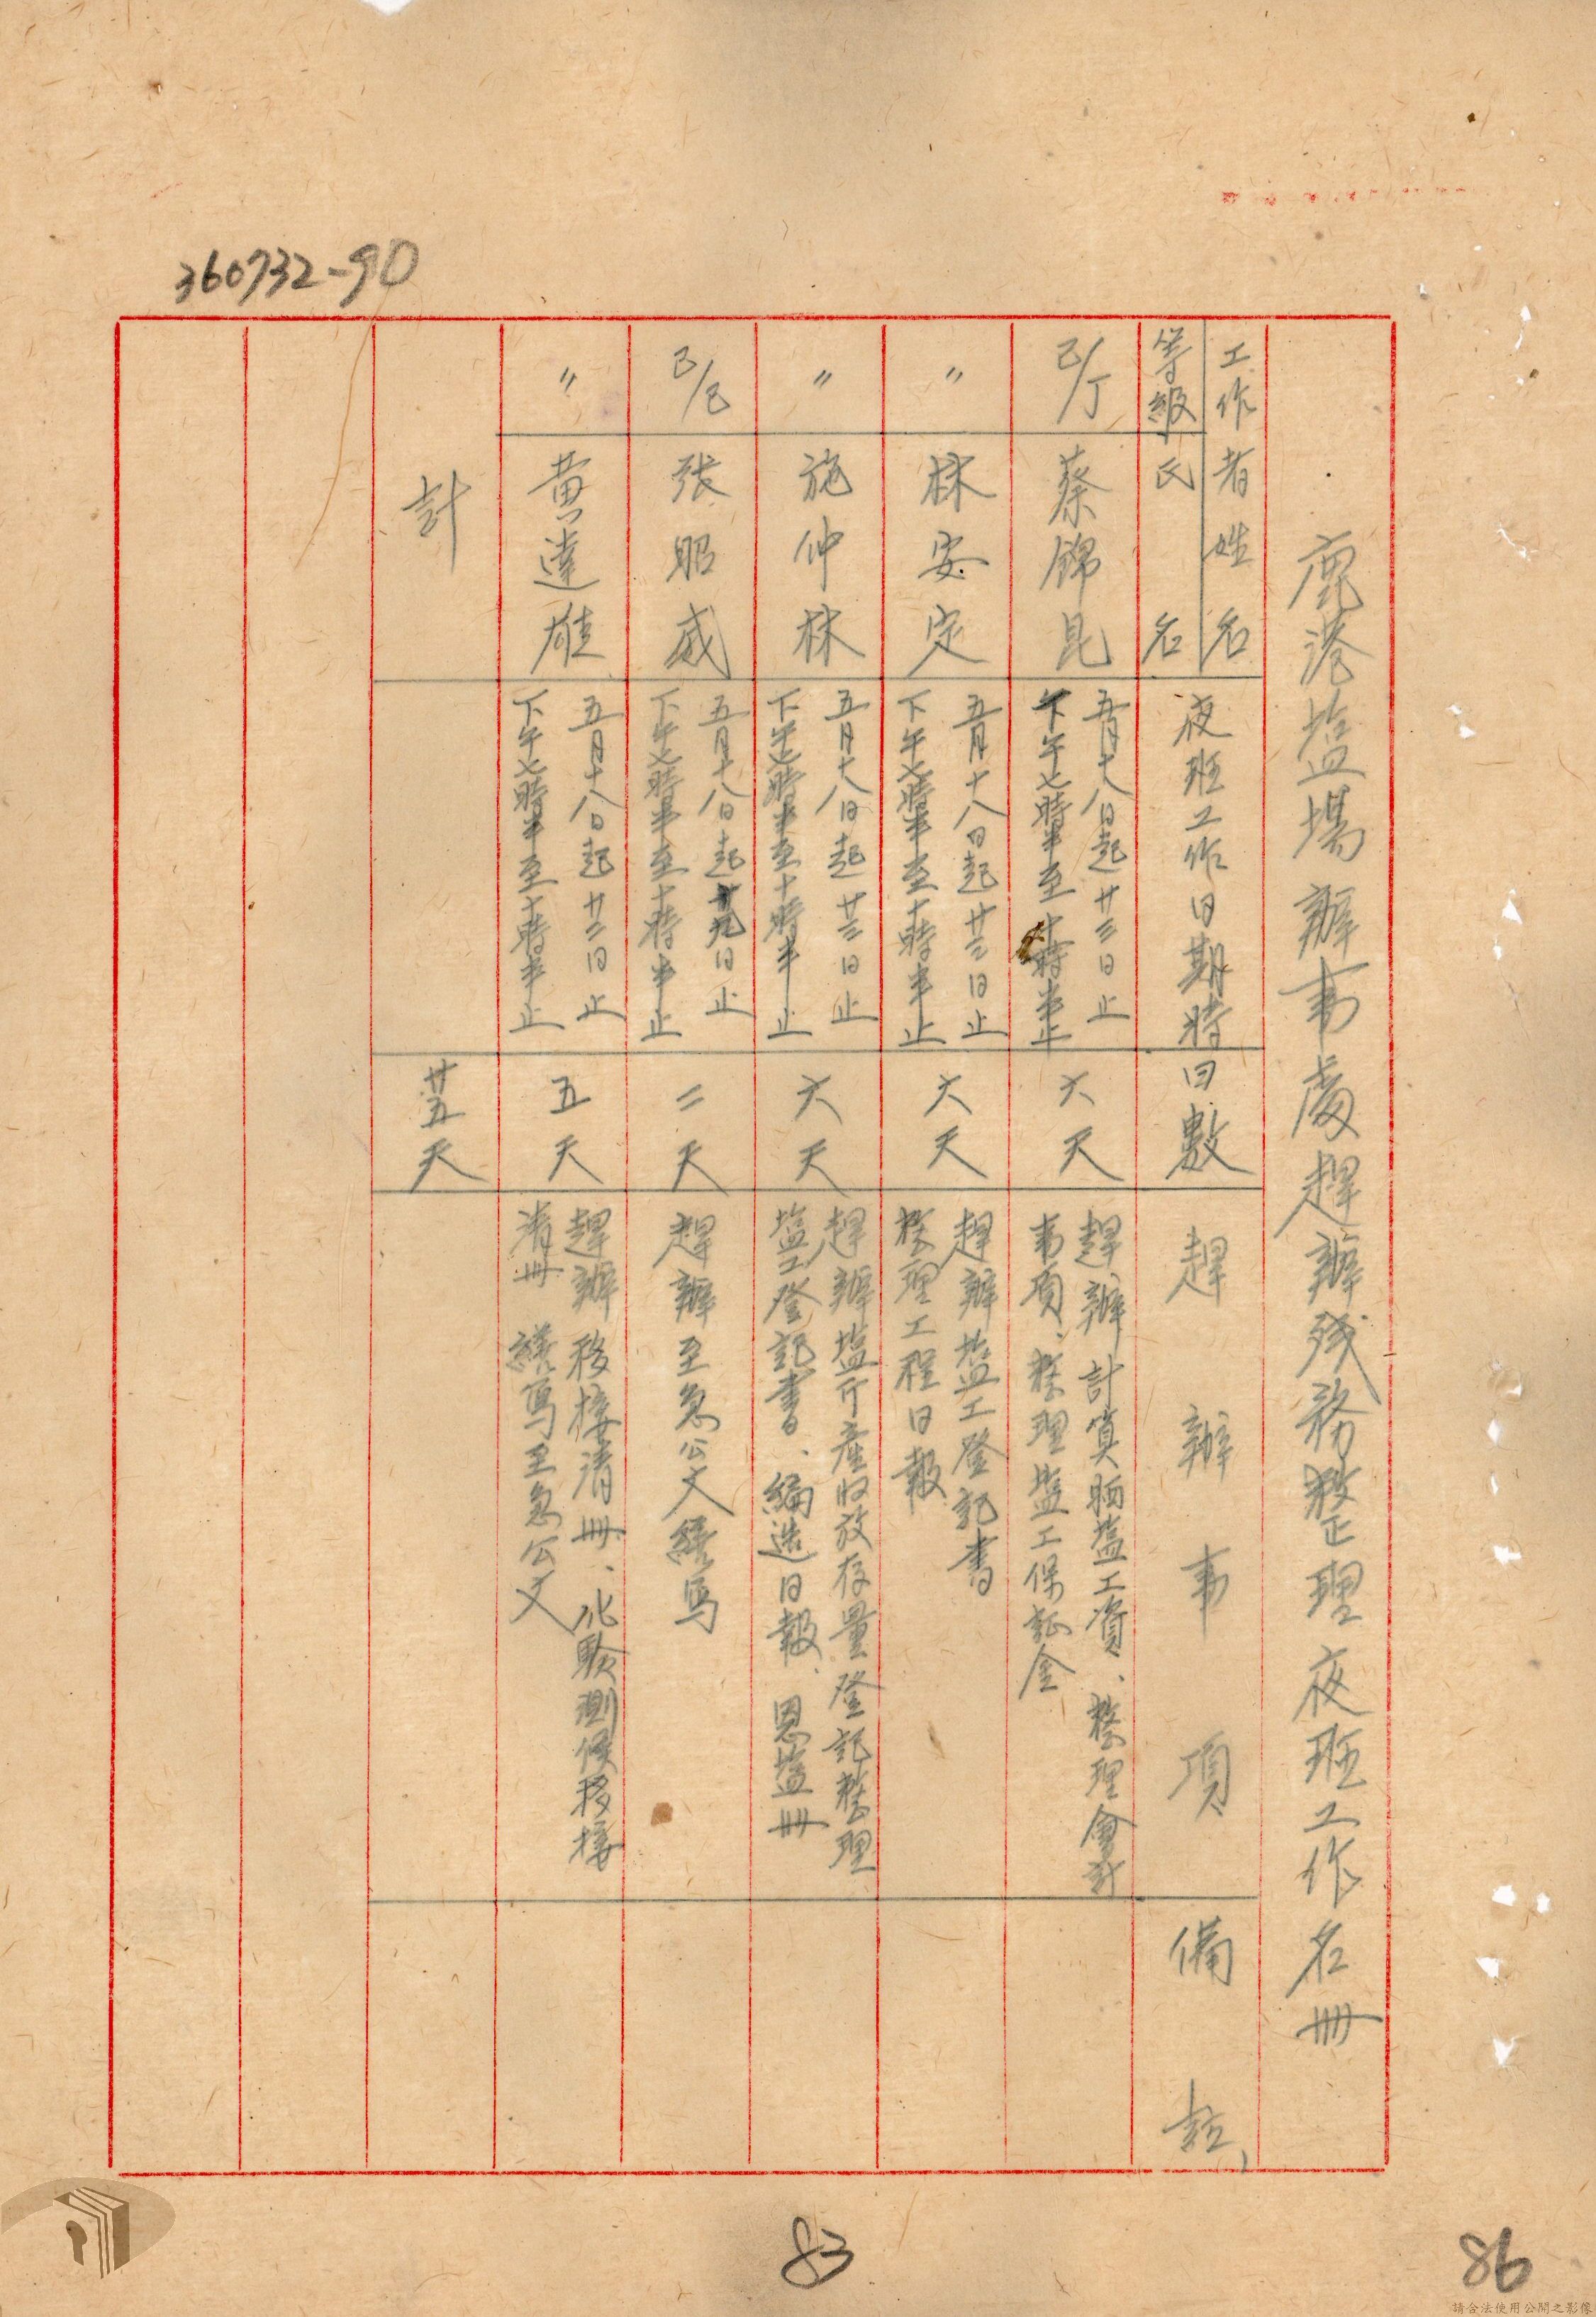 360732-90
鹿港塩場辦事處趕辦殘務整理夜班工作名冊
工作者姓名
等級 氏名
夜班工作日期時
日數
趕辦事項
備註
己/丁
蔡錦昆
五月十八日起廿三日止
下午七時半至十時半止
六天
趕辦計算晒塩工資、整理會計
事項、整理塩工保証金
〃
林安定
五月十八日起廿三日止
下午七時半至十時半止
六天
趕辦塩工登記書
整理工程日報
〃
施仲林
五月十八日起廿三日止
下午七時半至十時半止
六天
趕辦塩斤產收放存量登記整理
塩工登記書、編造日報、恩塩冊
己/己
張昭威
五月十八日起十九日止
下午七時半至十時半止
二天
趕辦至急公文繕寫
〃
黃達雄
五月十八日起廿二日止
下午七時半至十時半止
五天
趕辦移接清冊、化驗測候移接
清冊 繕寫至急公文
計
廿五天
83
86
請合法使用公開之影像